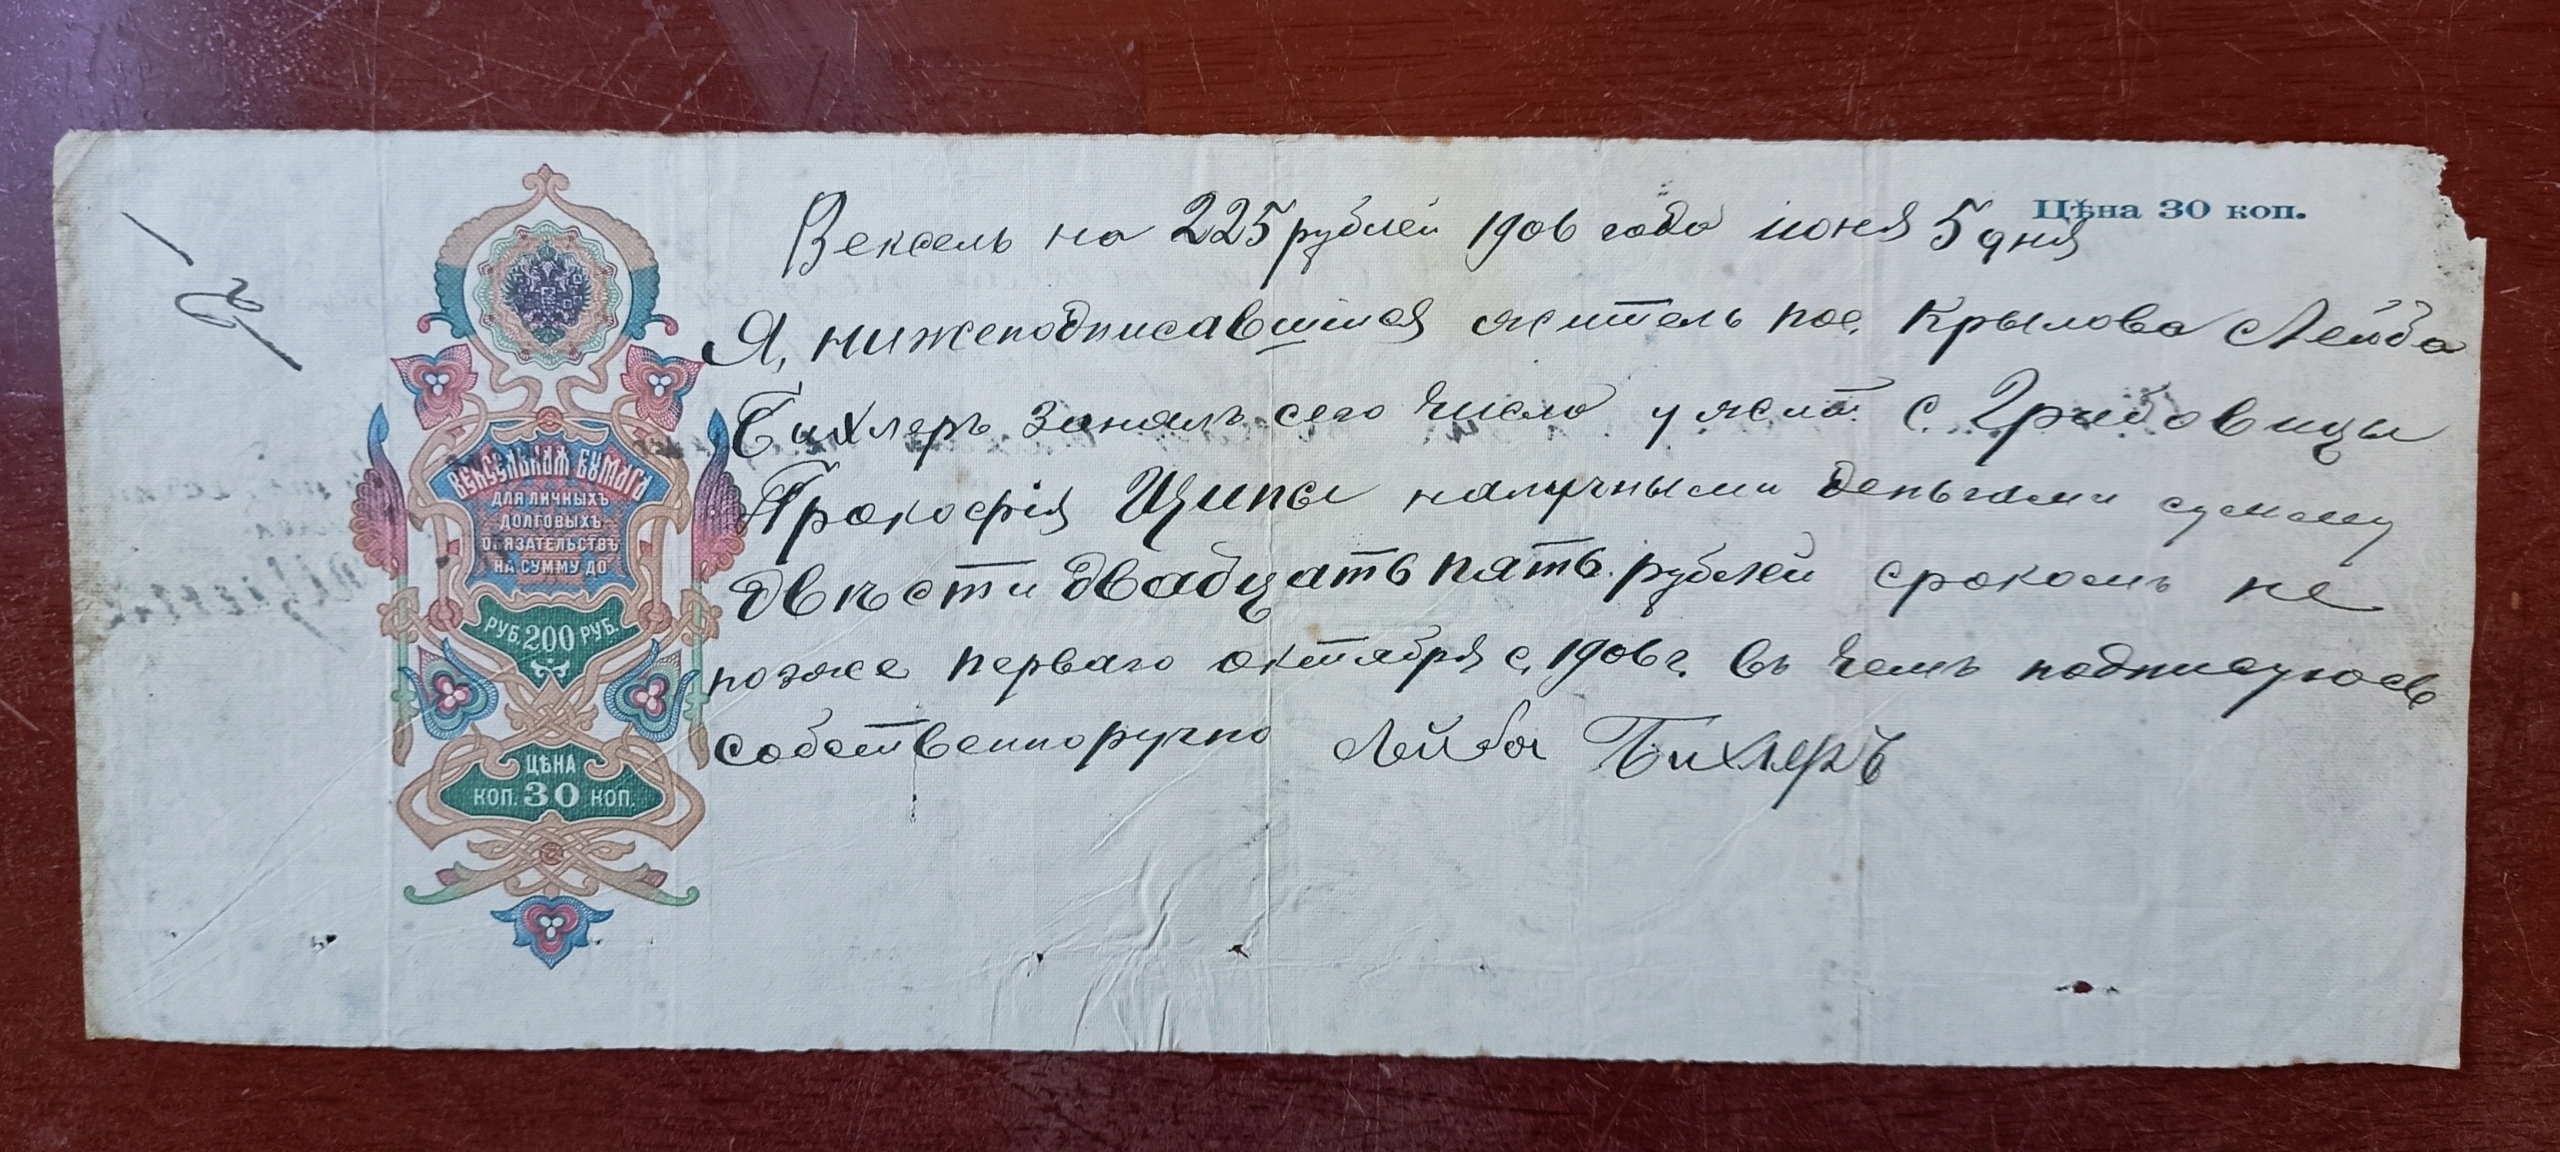 Цѣна 30 коп.
Вексель на 225 рублей 1906 года июня 5 дня
Я, нижеподписавшійся житель пос. Крылова Лейба
Бихлеръ занялъ сего числа у жит. с. Грибовицы
Прокофія Щипы наличными деньгами сумму
двѣсти двадцать пять рублей срокомъ не
позже перваго октября с. 1906 г. въ чемъ подписуюсь
собственноручно Лейба Бихлеръ
ВЕКСЕЛЬНАЯ БУМАГА
ДЛЯ ЛИЧНЫХЪ
ДОЛГОВЫХЪ
ОБЯЗАТЕЛЬСТВЪ
НА СУММУ ДО
РУБ. 200 РУБ.
ЦѢНА
КОП. 30 КОП.